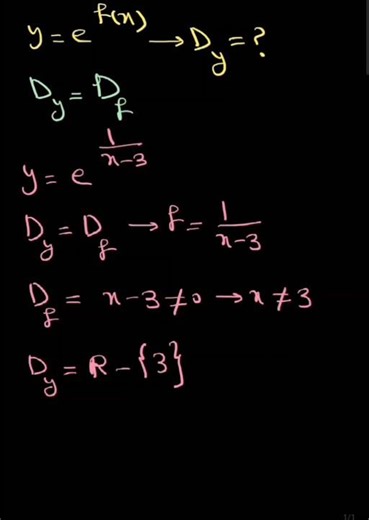 y = e^f(x) → D_y = ?
D_y = D_f
y = e^(1/(x-3))
D_y = D_f → f = 1/(x-3)
D_f = x-3≠0 → x≠3
D_y = R-{3}
1/1